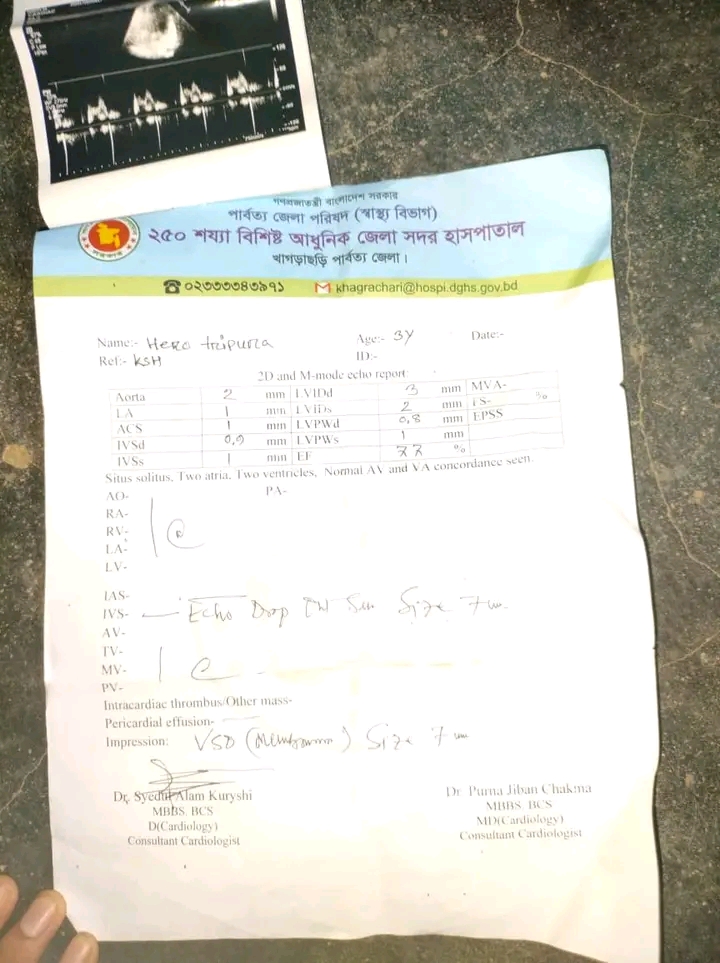 গণপ্রজাতন্ত্রী বাংলাদেশ সরকার
পার্বত্য জেলা পরিষদ (স্বাস্থ্য বিভাগ)
২৫০ শয্যা বিশিষ্ট আধুনিক জেলা সদর হাসপাতাল
খাগড়াছড়ি পার্বত্য জেলা।
০২৩৩৩৩৪৩৯৭১ khagrachari@hospi.dghs.gov.bd
Name:- Hero tripura Age:- 3Y Date:-
Ref:- KSH ID:-
2D and M-mode echo report:
Aorta 2 mm LVIDd 3 mm MVA-
LA 1 mm LVIDs 2 mm FS- %
ACS 1 mm LVPWd 0,8 mm EPSS
IVSd 0,9 mm LVPWs 1 mm
IVSs 1 mm EF 77 %
Situs solitus, Two atria, Two ventricles, Normal AV and VA concordance seen.
AO- PA-
RA-
RV-
LA-
LV-
IAS-
IVS- Echo Drop Size 7
AV-
TV-
MV-
PV-
Intracardiac thrombus/Other mass-
Pericardial effusion-
Impression: VSD Size 7
Dr. Syedul Alam Kuryshi
MBBS. BCS
D(Cardiology)
Consultant Cardiologist
Dr. Purna Jiban Chakma
MBBS. BCS
MD(Cardiology)
Consultant Cardiologist